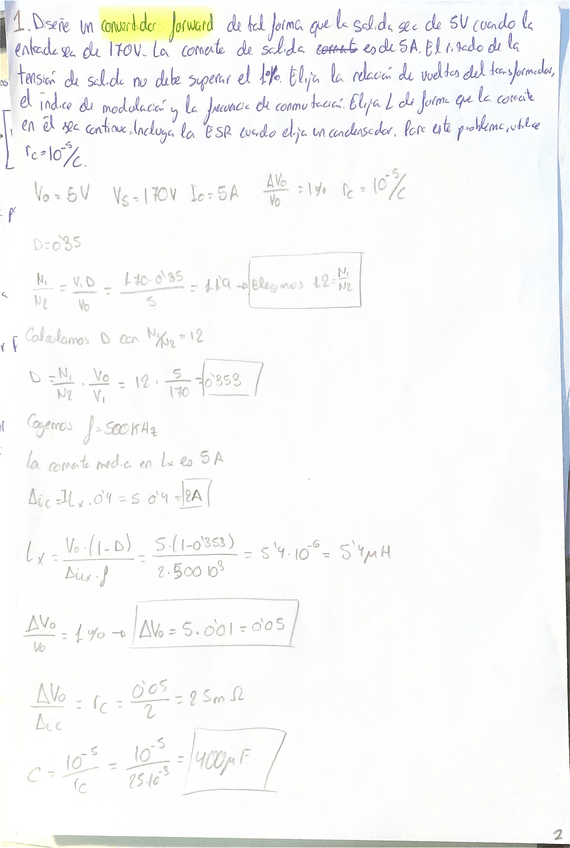 1. Diseñe un convertidor forward de tal forma que la salida sea de 5V cuando la
entrada sea de 170V. La corriente de salida es de 5A. El rizado de la
tensión de salida no debe superar el 1%. Elija la relación de vueltas del transformador,
el índice de modulación y la frecuencia de conmutación. Elija L de forma que la corriente
en él sea continua. Incluya la ESR cuando elija un condensador. Para este problema, utilice
rc=10⁻⁵/C.
Vo=5V Vs=170V Io=5A ΔVo/Vo=1% rc=10⁻⁵/C
D=0'35
N1/N2 = V1·D/Vo = 170·0'35/5 = 11'9 → Elegimos 12=N1/N2
Calculamos D con N1/N2=12
D=N1/N2·Vo/V1=12·5/170=0'353
Cogemos f=500KHz
La corriente media en Lx es 5A
Δic=ILx·0'4=5·0'4=2A
Lx=Vo·(1-D)/ΔiLx·f=5·(1-0'353)/2·500·10³=5'4·10⁻⁶=5'4μH
ΔVo/Vo=1% → ΔVo=5·0'01=0'05
ΔVo/Δic=rc=0'05/2=25mΩ
C=10⁻⁵/rc=10⁻⁵/25·10⁻³=400μF
2